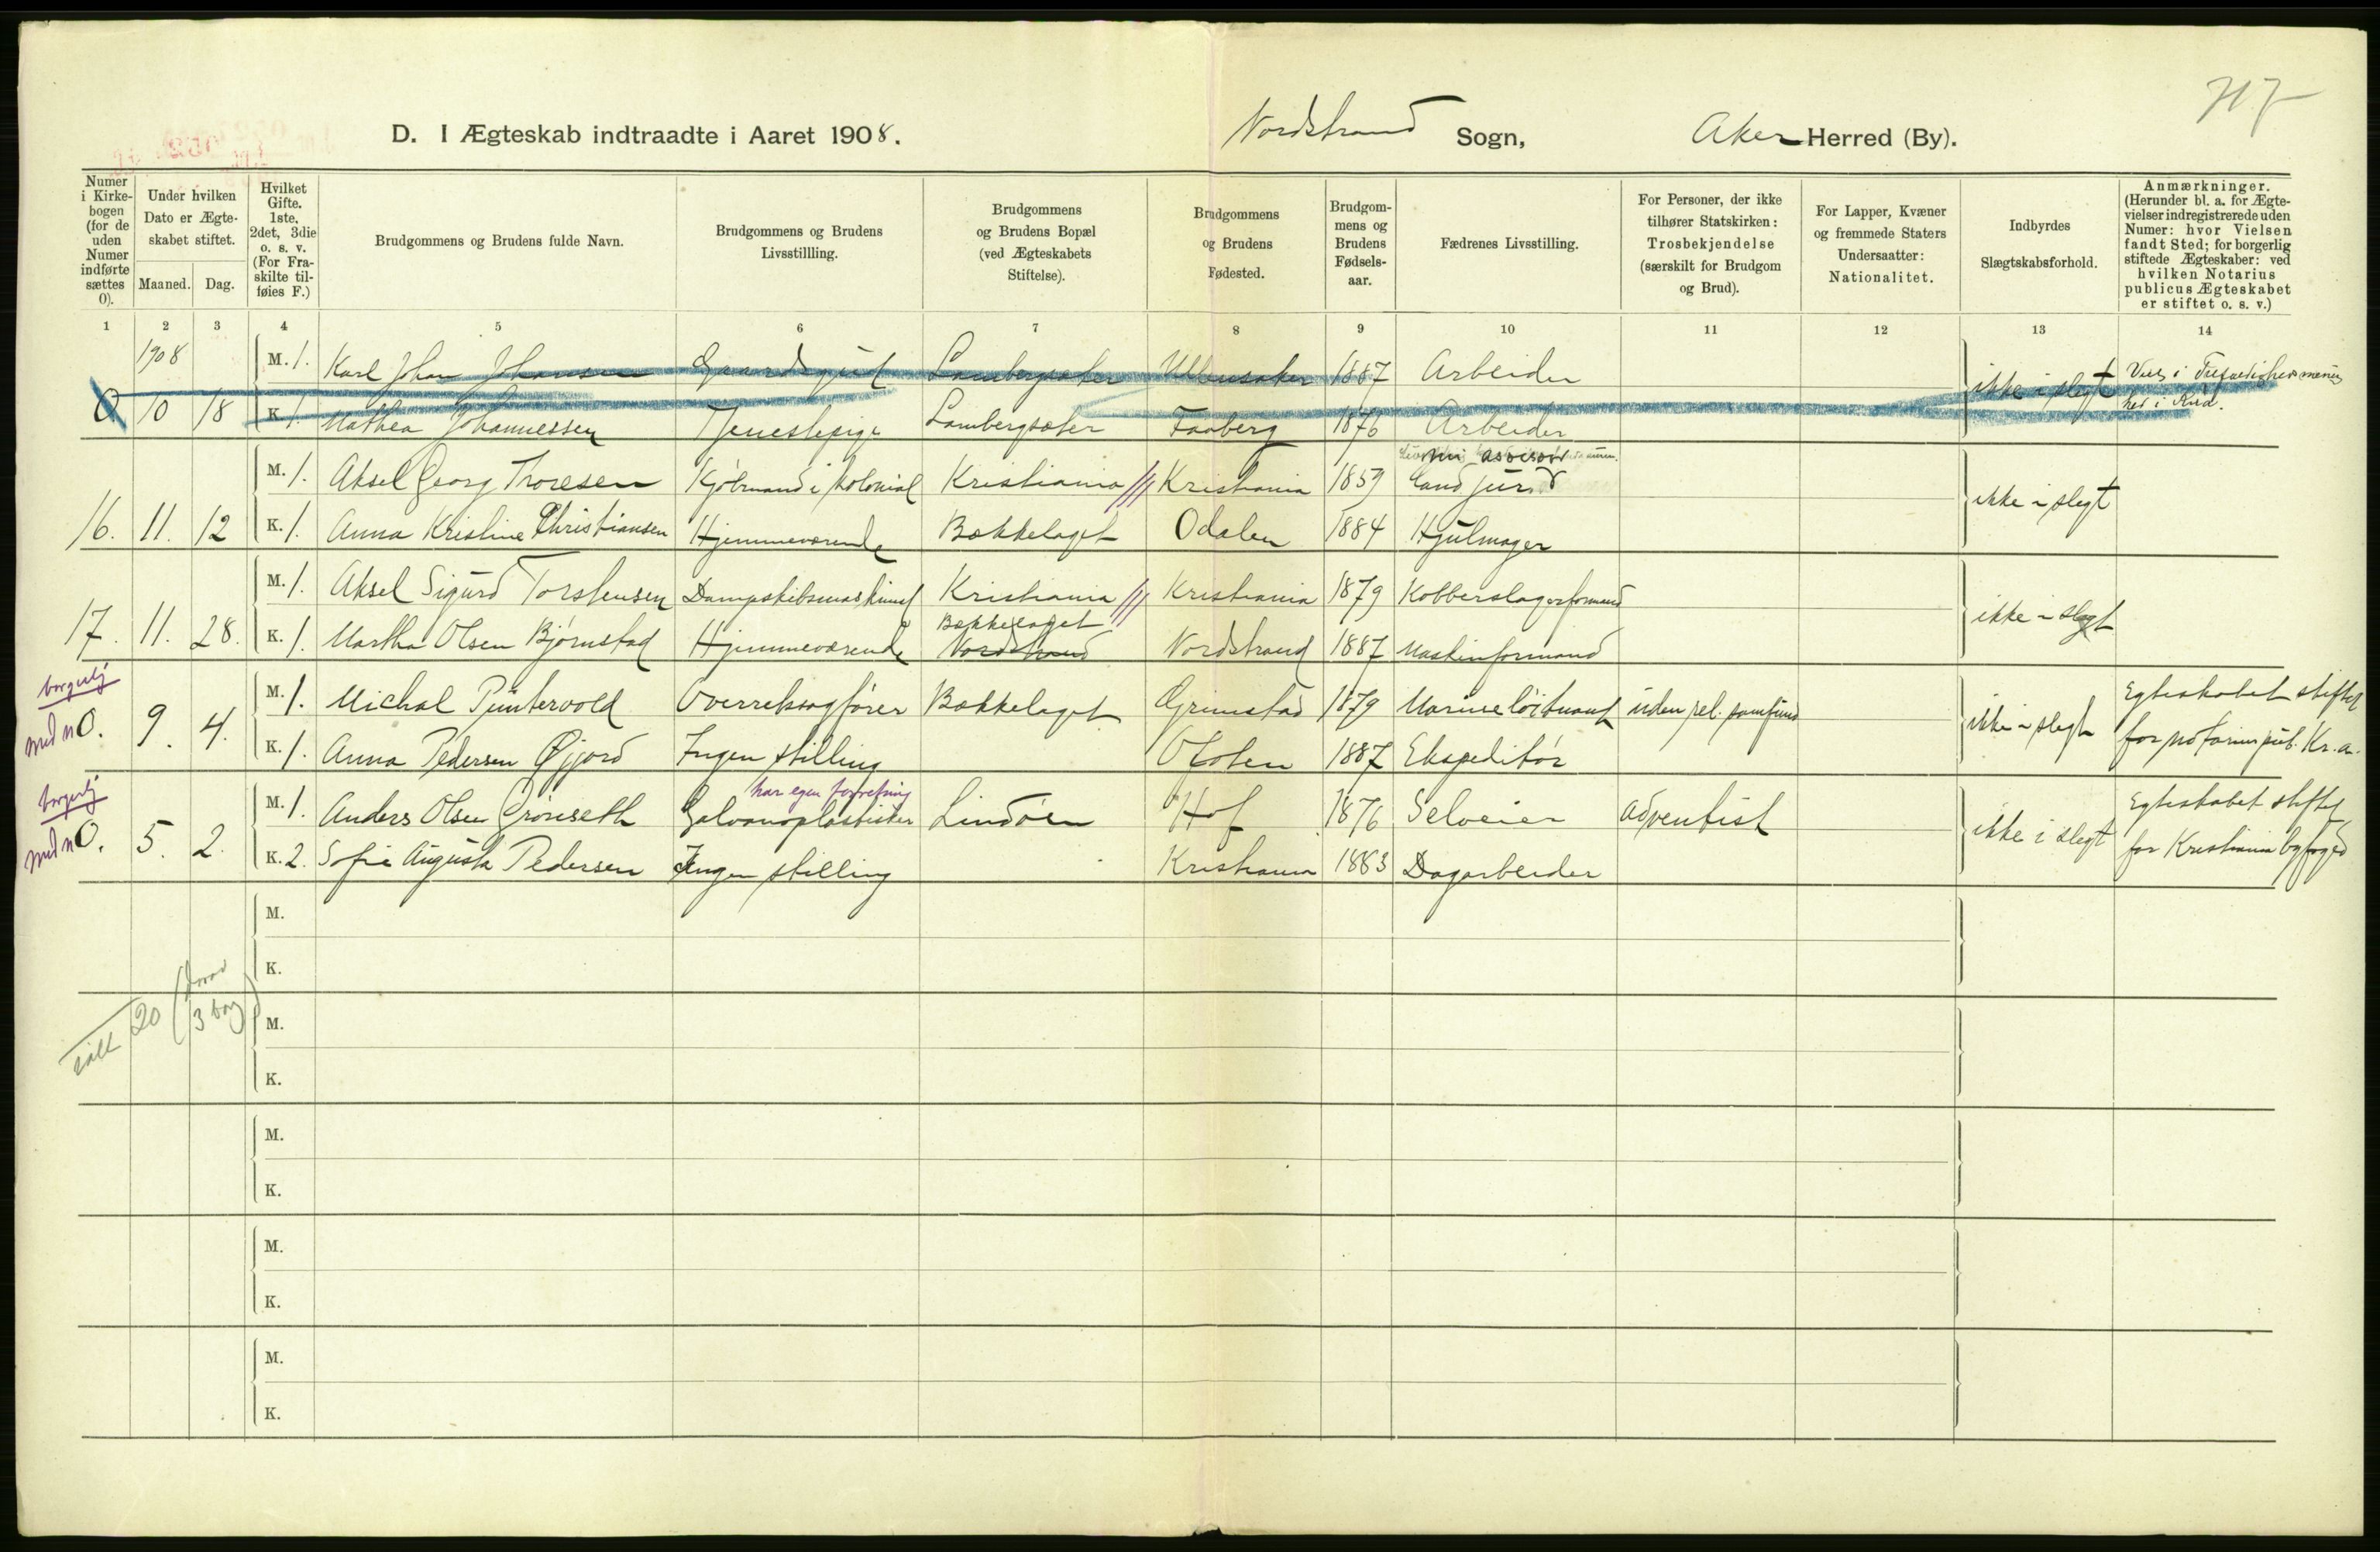 717
D. I Ægteskab indtraadte i Aaret 1908.
Nordstrand Sogn,
Aker Herred (By).
Numer i Kirkebogen (for de uden Numer indførte sættes 0).
Under hvilken Dato er Ægteskabet stiftet.
Maaned. Dag.
Hvilket Gifte. 1ste, 2det, 3die o. s. v. (For Fraskilte tilføies F.)
Brudgommens og Brudens fulde Navn.
Brudgommens og Brudens Livsstillling.
Brudgommens og Brudens Bopæl (ved Ægteskabets Stiftelse).
Brudgommens og Brudens Fødested.
Brudgommens og Brudens Fødselsaar.
Fædrenes Livsstilling.
For Personer, der ikke tilhører Statskirken: Trosbekjendelse (særskilt for Brudgom og Brud).
For Lapper, Kvæner og fremmede Staters Undersaatter: Nationalitet.
Indbyrdes Slægtskabsforhold.
Anmærkninger. (Herunder bl. a. for Ægtevielser indregistrerede uden Numer: hvor Vielsen fandt Sted; for borgerlig stiftede Ægteskaber: ved hvilken Notarius publicus Ægteskabet er stiftet o. s. v.)
1 2 3 4 5 6 7 8 9 10 11 12 13 14
1908
M. 1. Karl Johan Johansen Gaardsgut Lambergsæter Ullensaker 1887 Arbeider ikke i slegt Vies i
0 10 18 K. 1. Mathea Johannessen Tjenestepige Lambergsæter Faaberg 1876 Arbeider
M. 1. Aksel Georg Thoresen Kjøbmand i kolonial Kristiania Kristiania 1859 Cand jur. assessor ikke i slegt
16. 11. 12 K. 1. Anna Kristine Christiansen Hjemmeværende Bækkelaget Odalen 1884 Hjulmager
M. 1. Aksel Sigurd Torstensen Dampskibsmaskinist Kristiania Kristiania 1879 Kobberslagerformand ikke i slegt
Bækkelaget
17. 11. 28. K. 1. Martha Olsen Bjørnstad Hjemmeværende Nordstrand Nordstrand 1887 Maskinformand
borgerlig
M. 1. Michal Puntervold Overretssagfører Bækkelaget Grimstad 1879 Marineløitnant uden rel. samfund ikke i slegt Egteskabet stiftet
med n 0. 9. 4. K. 1. Anna Pedersen Øijord Ingen stilling Ofoten 1887 Ekspeditør for notarius pub. Kr.a.
borgerlig
har egen forretning
M. 1. Anders Olsen Grønseth Galvanoplastiker Lindøen Hof 1876 Selveier adventist ikke i slegt Egteskabet stiftet
med n 0. 5. 2. K. 2. Sofie Augusta Pedersen Ingen stilling Kristiania 1883 Dagarbeider for Kristiania byfoged
M.
K.
ialt 20 (hvorav 3 borg)
M.
K.
M.
K.
M.
K.
M.
K.